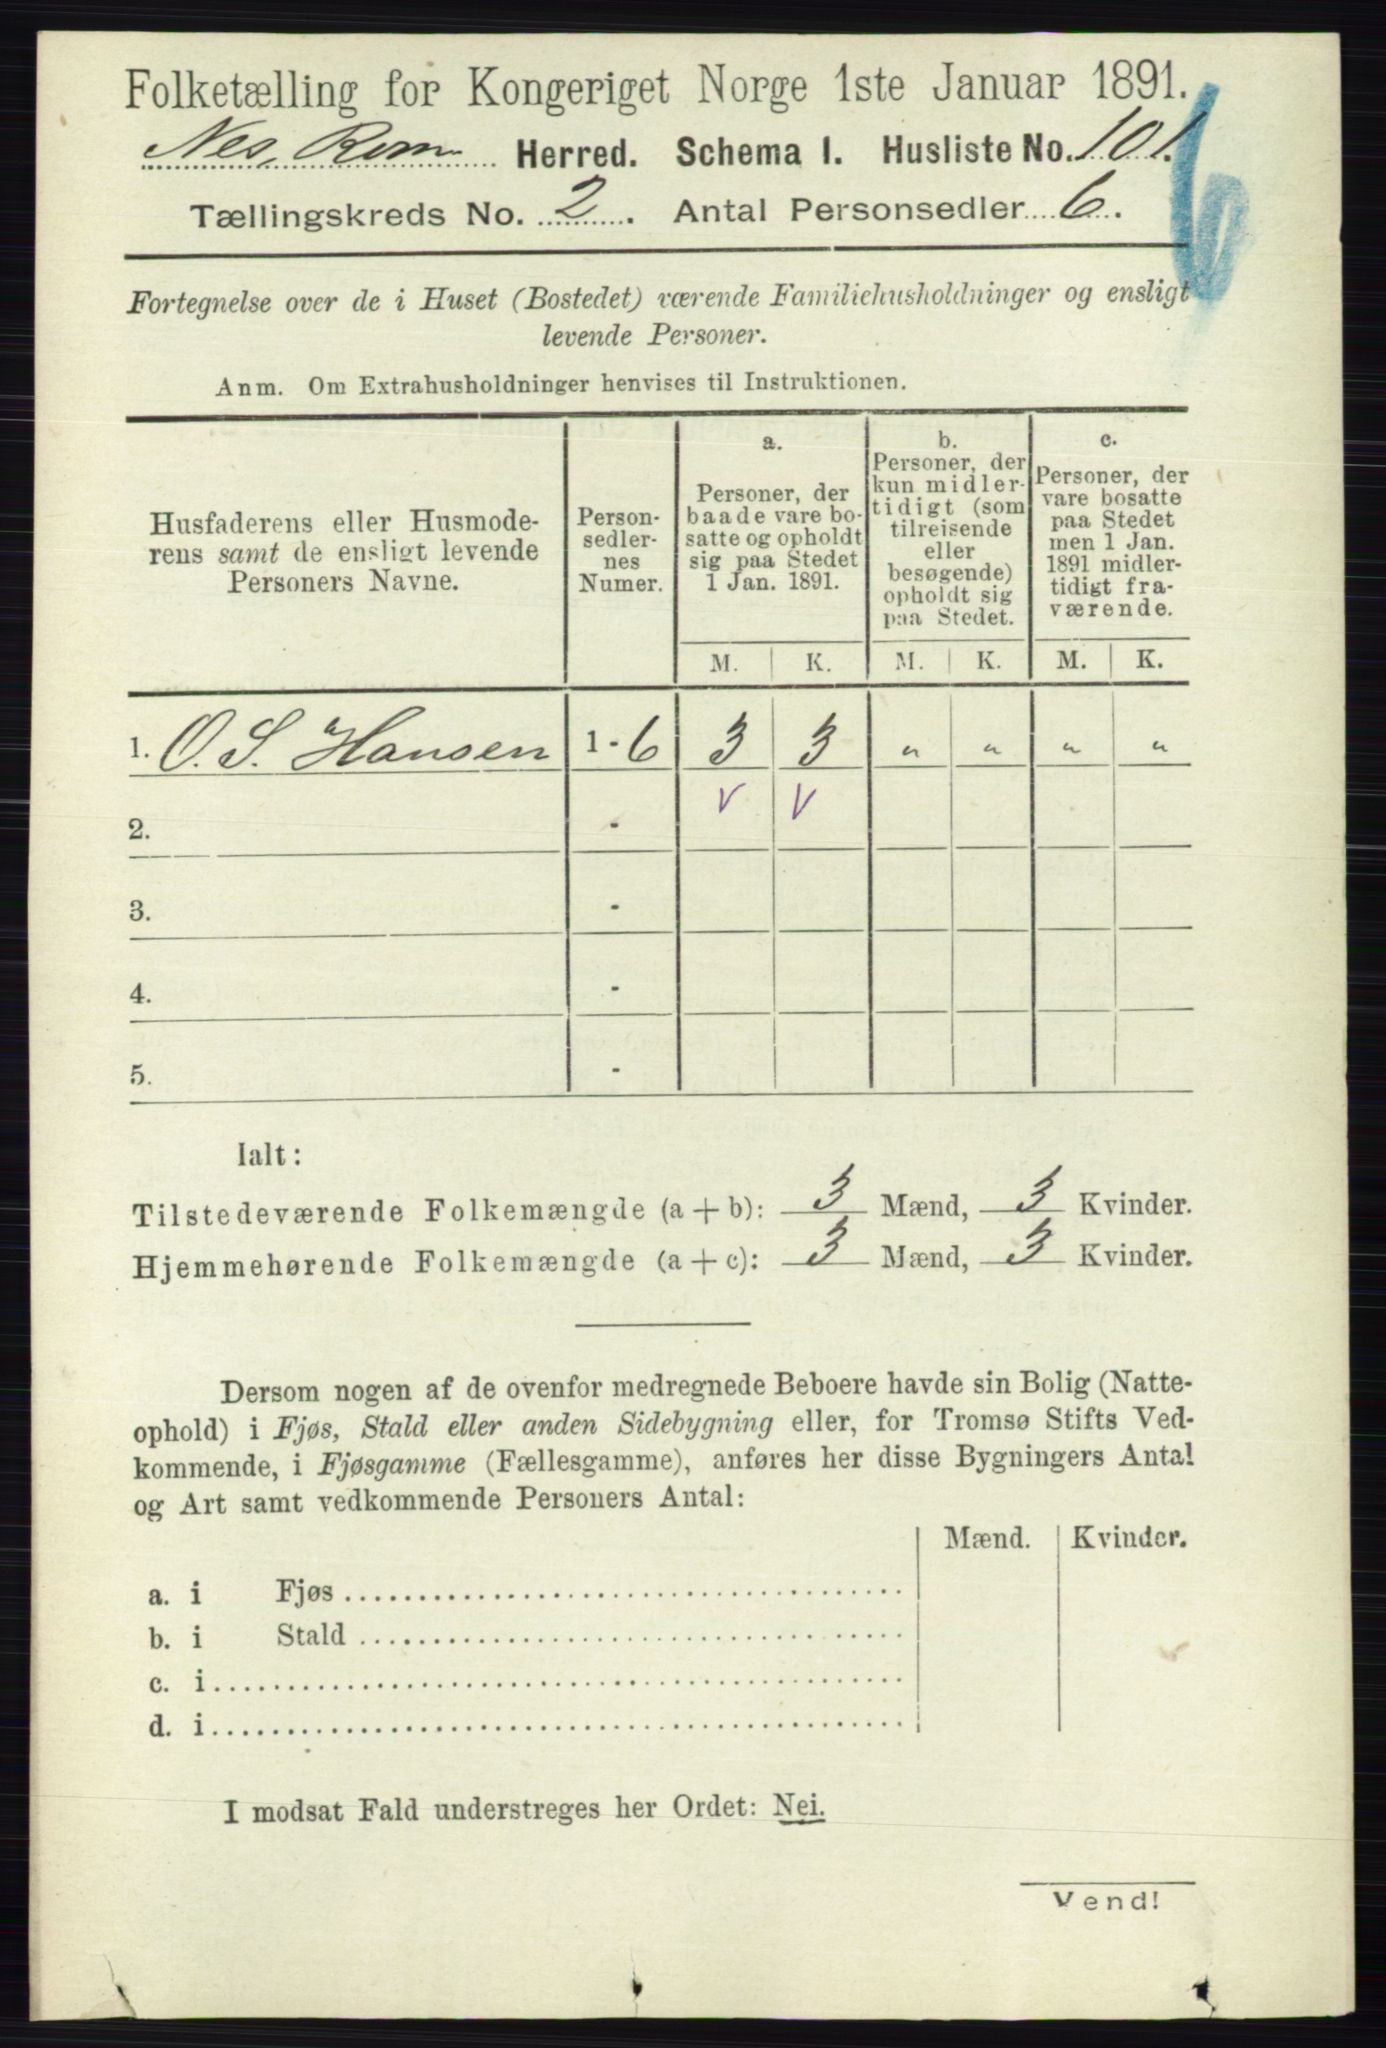 Folketælling for Kongeriget Norge 1ste Januar 1891.
Nes, Rom Herred. Schema I. Husliste No. 101.
Tællingskreds No. 2. Antal Personsedler 6.
6
Fortegnelse over de i Huset (Bostedet) værende Familiehusholdninger og ensligt
levende Personer.
Anm. Om Extrahusholdninger henvises til Instruktionen.
Husfaderens eller Husmode-
rens samt de ensligt levende
Personers Navne.
Person-
sedler-
nes
Numer.
a.
Personer, der
baade vare bo-
satte og opholdt
sig paa Stedet
1 Jan. 1891.
b.
Personer, der
kun midler-
tidigt (som
tilreisende
eller
besøgende)
opholdt sig
paa Stedet.
c.
Personer, der
vare bosatte
paa Stedet
men 1 Jan.
1891 midler-
tidigt fra-
værende.
M. K. M. K. M. K.
1. O. S. Hansen 1 - 6 3 3 „ „ „ „
2. - V V
3. -
4. -
5. -
Ialt:
Tilstedeværende Folkemængde (a + b): 3 Mænd, 3 Kvinder.
Hjemmehørende Folkemængde (a + c): 3 Mænd, 3 Kvinder.
Dersom nogen af de ovenfor medregnede Beboere havde sin Bolig (Natte-
ophold) i Fjøs, Stald eller anden Sidebygning eller, for Tromsø Stifts Ved-
kommende, i Fjøsgamme (Fællesgamme), anføres her disse Bygningers Antal
og Art samt vedkommende Personers Antal:
Mænd. Kvinder.
a. i Fjøs
b. i Stald
c. i
d. i
I modsat Fald understreges her Ordet: Nei.
Vend!